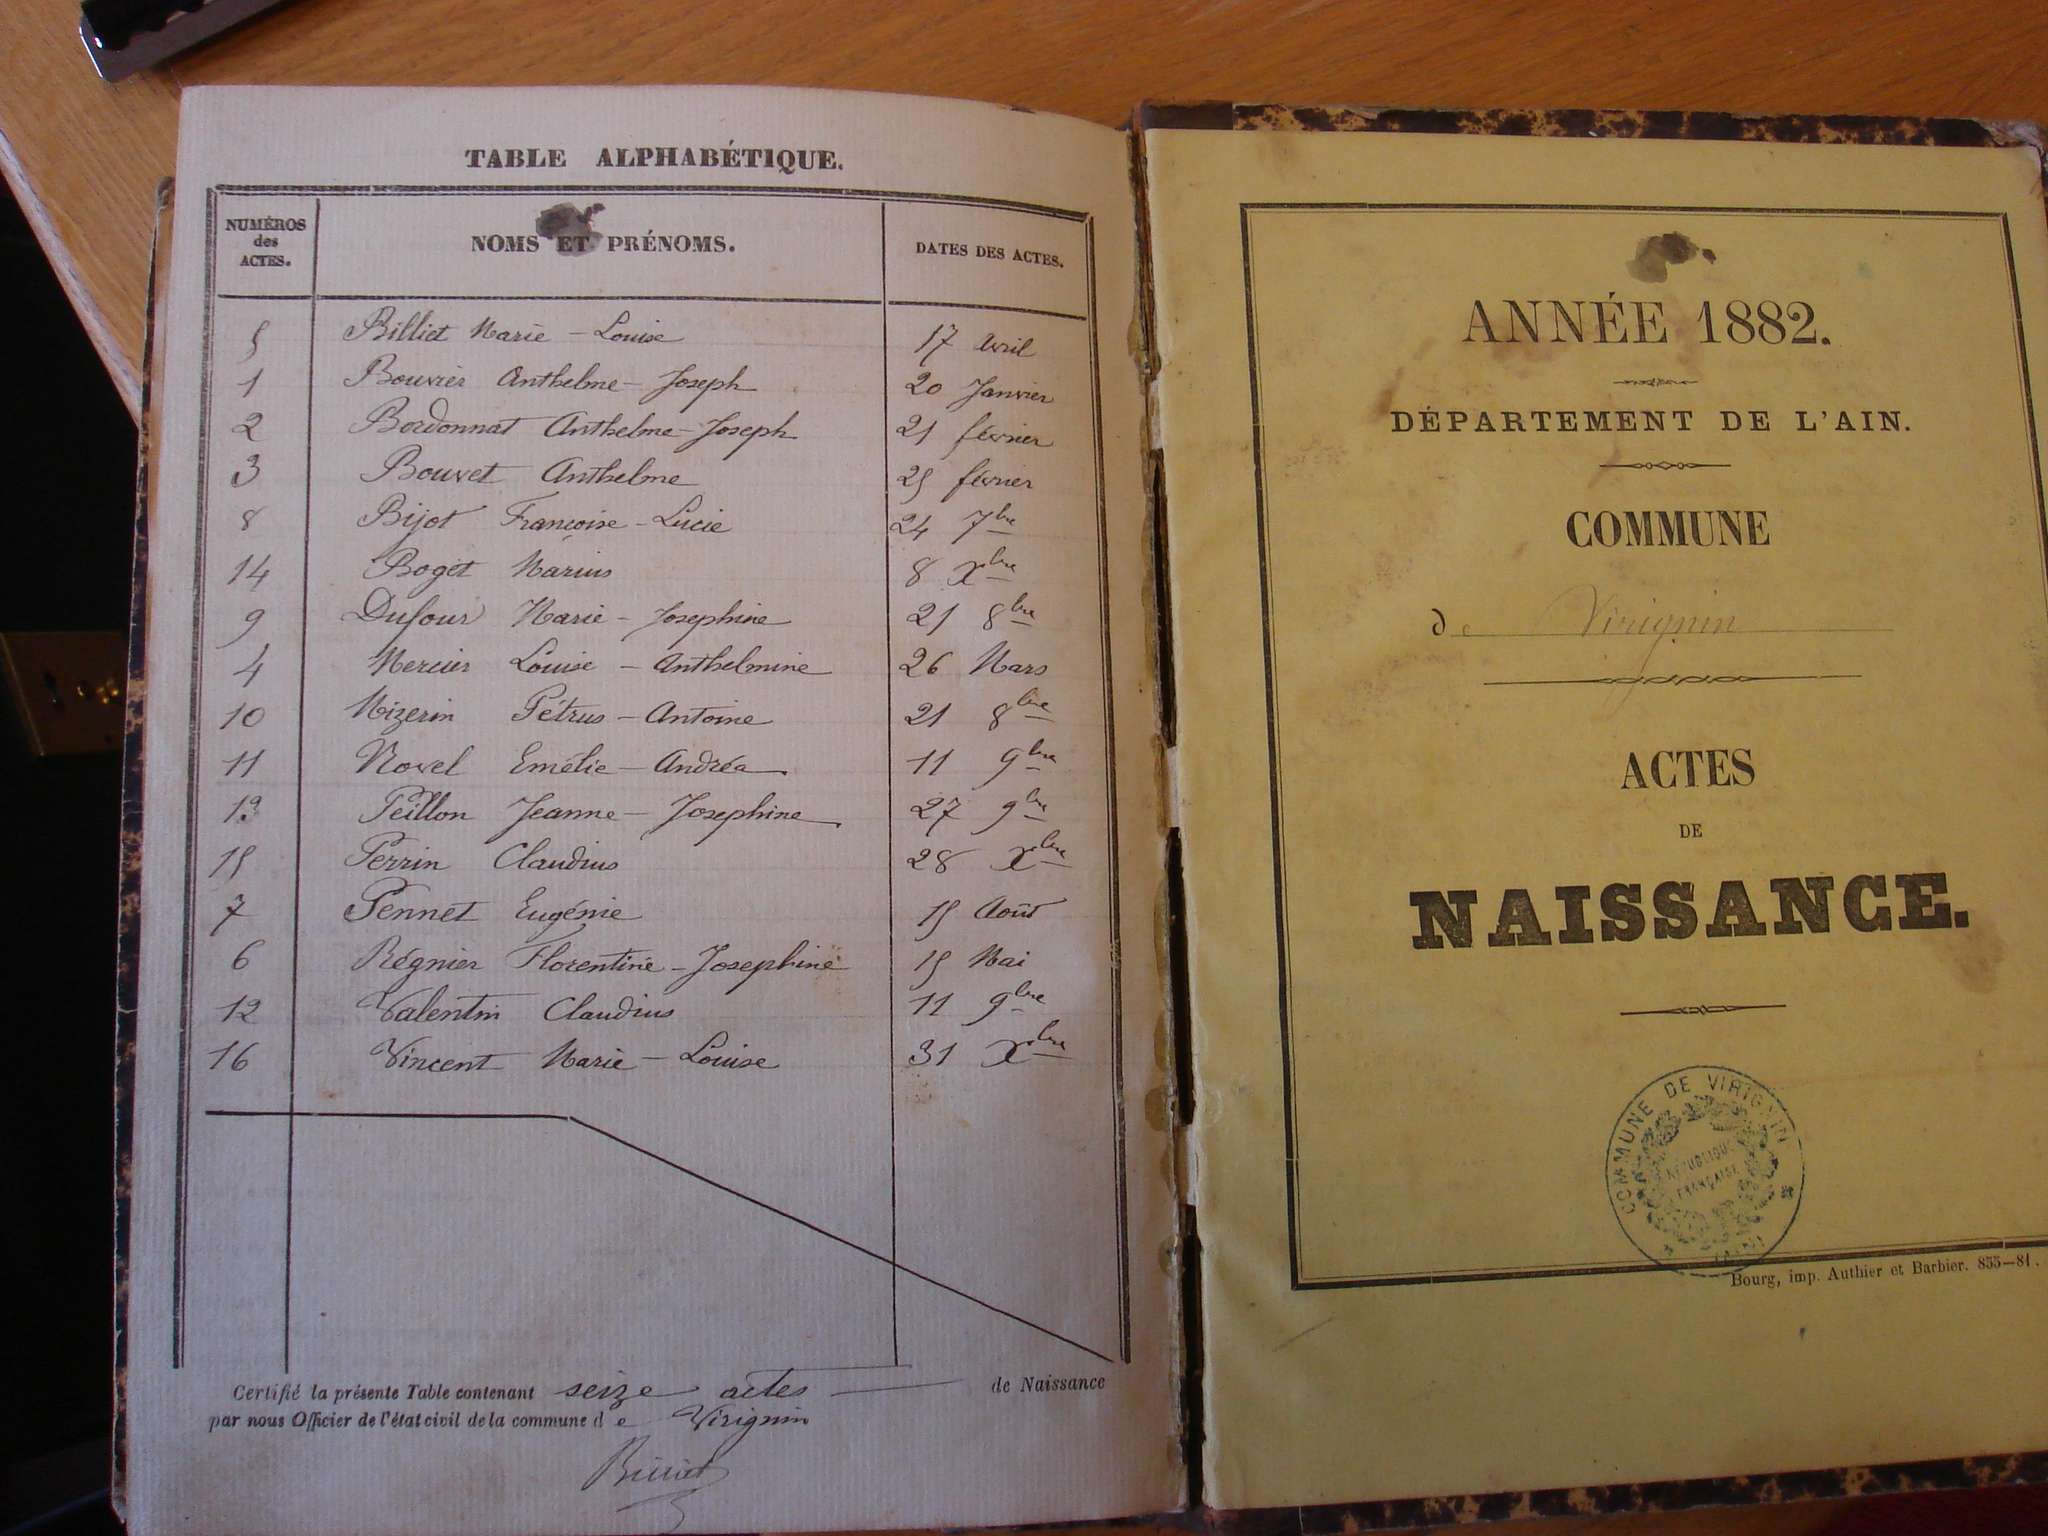 TABLE ALPHABÉTIQUE.
NUMÉROS des ACTES. NOMS ET PRÉNOMS. DATES DES ACTES.
5 Billiet Marie - Louise 17 avril
1 Bouvier Anthelme - Joseph 20 Janvier
2 Bordonnat Anthelme - Joseph 21 février
3 Bouvet Anthelme 25 février
8 Bijot Françoise - Lucie 24 7bre
14 Boget Marius 8 Xbre
9 Dufour Marie - Josephine 21 8bre
4 Mercier Louise - Anthelmine 26 Mars
10 Mizerin Pétrus - Antoine 21 8bre
11 Novel Emélie - Andréa 11 9bre
13 Peillon Jeanne - Josephine 27 9bre
15 Perrin Claudius 28 Xbre
7 Pennet Eugénie 15 Août
6 Régnier Florentine - Josephine 15 Mai
12 Valentin Claudius 11 9bre
16 Vincent Marie - Louise 31 Xbre
Certifié la présente Table contenant seize actes de Naissance
par nous Officier de l'état civil de la commune de Virignin
Billiet
ANNÉE 1882.
DÉPARTEMENT DE L'AIN.
COMMUNE
de Virignin
ACTES
DE
NAISSANCE.
COMMUNE DE VIRIGNIN
RÉPUBLIQUE
FRANÇAISE
(AIN)
Bourg, imp. Authier et Barbier. 855-81.